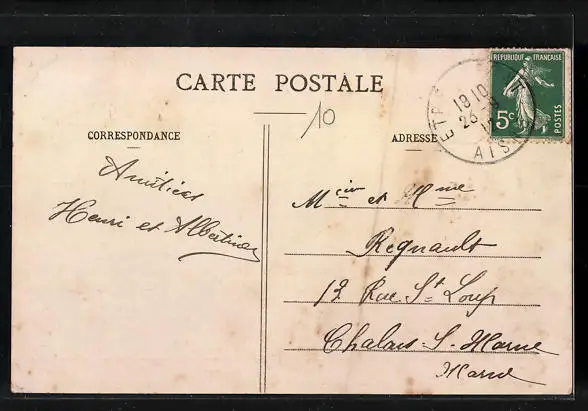 CARTE POSTALE
10
CORRESPONDANCE
Amitiés
Henri et Albertine
ADRESSE
REPUBLIQUE FRANÇAISE
5c
POSTES
18 10
26 9
AIS
Mcier et Mme
Regnault
12 Rue St Loup
Chalons S. Marne
Marne